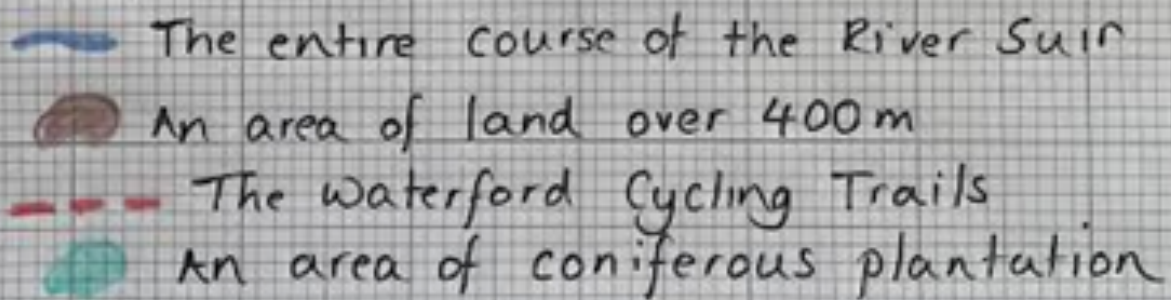 The entire course of the River Suir
An area of land over 400 m
The Waterford Cycling Trails
An area of coniferous plantation